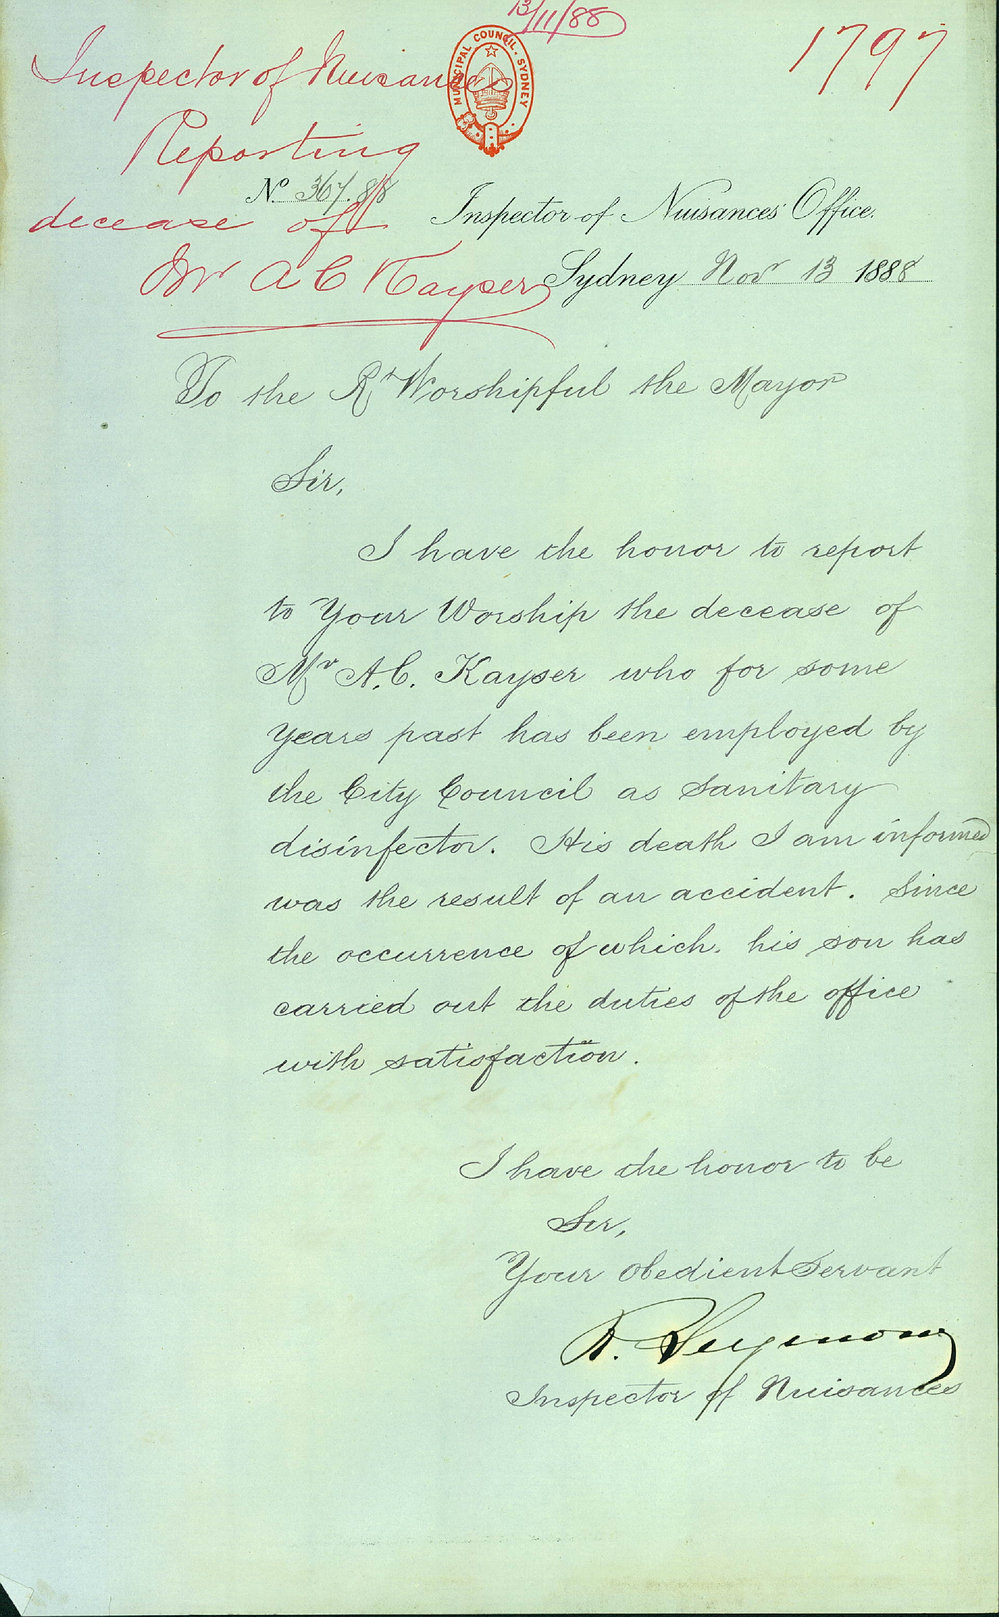 13/11/88
1797
Inspector of Nuisances
Reporting
decease of
Mr A C Kayser
MUNICIPAL COUNCIL. SYDNEY
No. 367.88
Inspector of Nuisances' Office.
Sydney Nov 13 1888
To the Rt Worshipful the Mayor
Sir,
I have the honor to report
to Your Worship the decease of
Mr A.C. Kayser who for some
years past has been employed by
the City Council as Sanitary
disinfector. His death I am informed
was the result of an accident. Since
the occurrence of which, his son has
carried out the duties of the office
with satisfaction.
I have the honor to be
Sir,
Your Obedient Servant
R. Seymour
Inspector of Nuisances